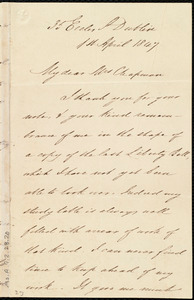 35 Eccles St Dublin
1st April 1847
My dear Mrs Chapman
I thank you for your
note & your kind remem-
brance of me in the shape of
a copy of the last Liberty Bell
which I have not yet been
able to look over. Indeed my
study table is always well
filled with areas of work of
that kind. I can never find
time to keep ahead of my
work. It gives me much